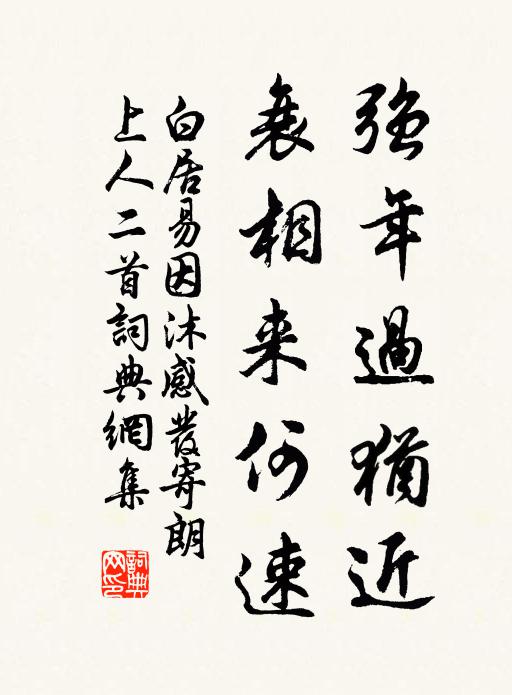 強年過猶近
衰相来何速
白居易因沐感發寄朗
上人二首詞典網集
詞典
网印